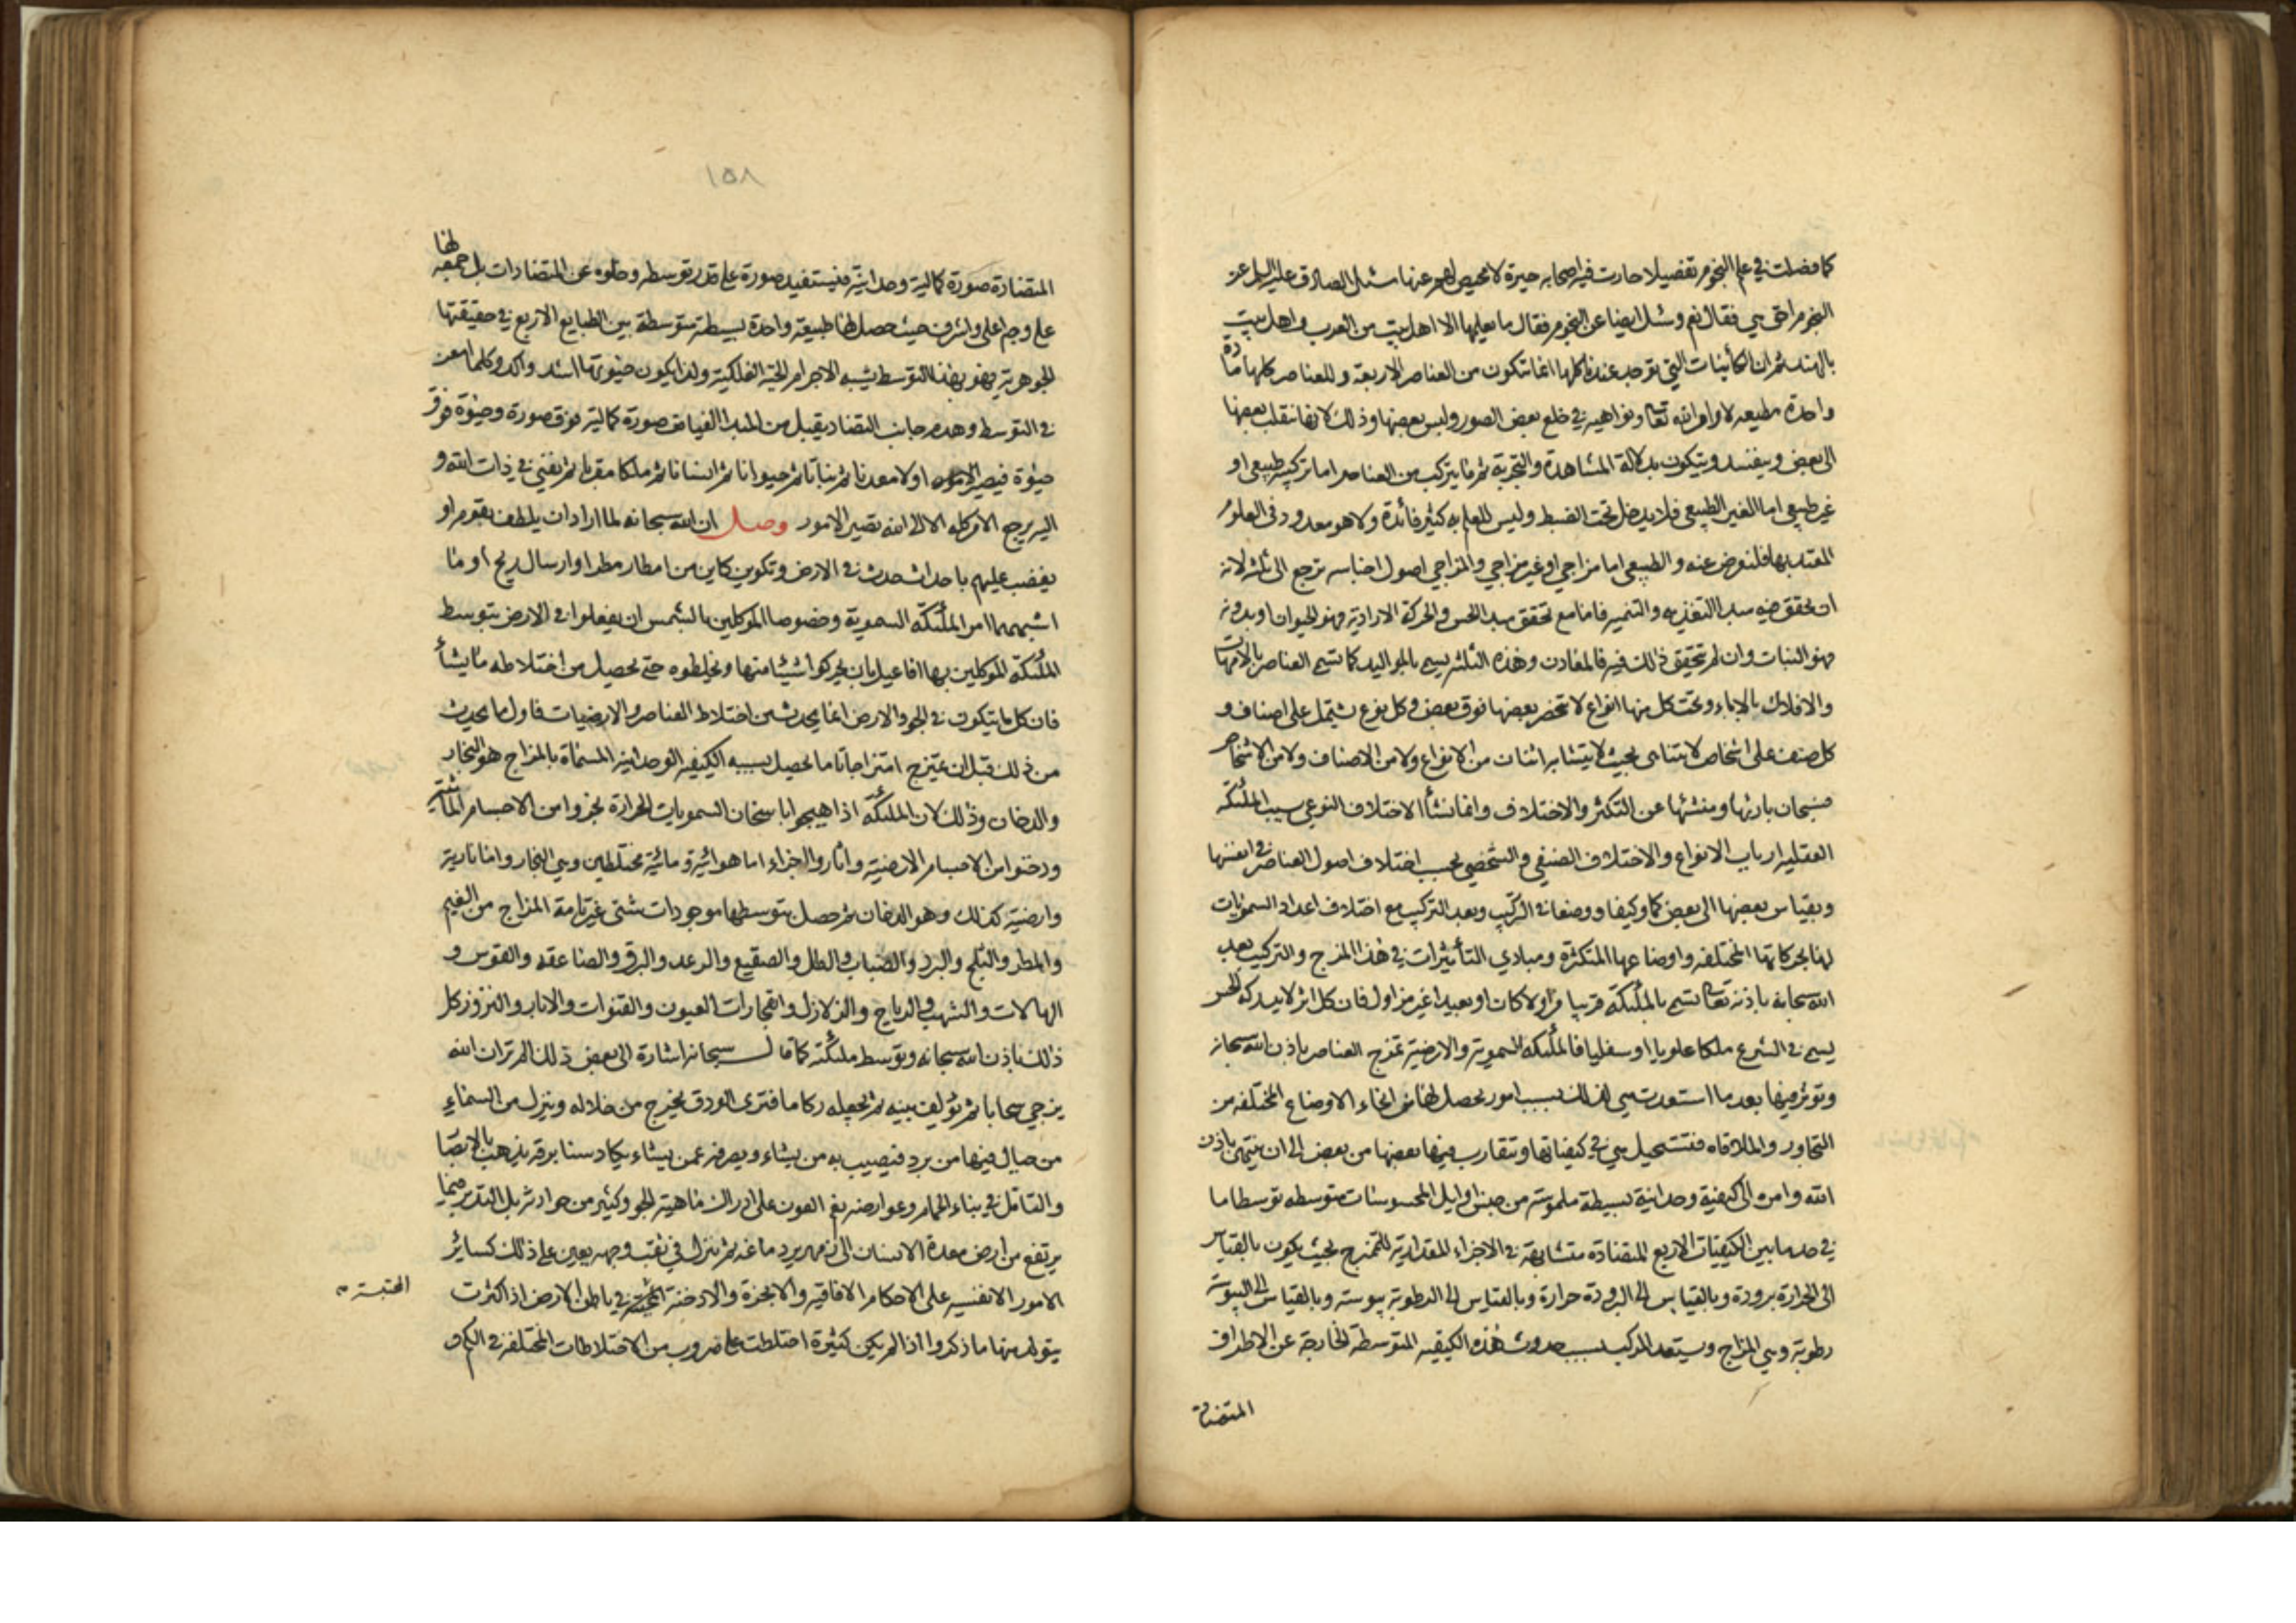 كما فصلت في علم النجوم تفصيلا حارت فيه اصحابه حيرة لا محيص لهم عنها سئل الصادق عليه السلم عن
النجوم احق هي فقال نعم وسئل ايضا عن النجوم فقال ما يعلمها الا اهل بيت من العرب و اهل بيت
بالهند ثم ان الكائنات التي توجد عندنا كلها انما تتكون من العناصر الاربعة و للعناصر كلها مادة
واحدة مطيعه لاوامر الله تعالى ونواهيه في خلع بعض الصور ولبس بعضها وذلك لانها تنقلب بعضها
الى بعض ويفسد ويتكون بدلالة المشاهدة والتجربة ثم ما يتركب من العناصر اما تركيبه طبيعي او
غير طبيعي اما الغير الطبيعي فلا يدخل تحت الضبط وليس للعلم به كثير فائدة ولا هو معدود في العلوم
المعتد بها فلنعرض عنه والطبيعي اما مزاجي او غير مزاجي والمزاجي اصول اجناسه ترجع الى ثلثة لانه
ان تحقق فيه مبدا التغذيه والتنميه فاما مع تحقق مبدا الحس والحركة الارادية فهو الحيوان او بدونه
فهو النبات وان لم يتحقق ذلك فيه فالمعادن وهذه الثلثه يسمى بالمواليد كما تسمى العناصر بالامهات
والافلاك بالاباء وتحت كل منها انواع لا تنحصر بعضها فوق بعض وكل نوع يشتمل على اصناف و
كل صنف على اشخاص لا يتناهى بحيث لا يتشابه اثنان من الانواع ولا من الاصناف ولا من الاشخاص
فسبحان بارئها ومنشئها عن التكثر والاختلاف وانما نشأ الاختلاف النوعي بسبب الملئكه
العقليه ارباب الانواع والاختلاف الصنفي والشخصي بحسب اختلاف اصول العناصر في انفسها
وبقياس بعضها الى بعض كما وكيفا ووضعا في التركيب وبعد التركيب مع اختلاف اعداد السمويات
لها بحركاتها المختلفه واوضاعها المتكثرة ومبادي التأثيرات في هذا المزج والتركيب بعد
الله سبحانه باذنه تعالى تسمى بالملئكة قريبا مزاولا كان او بعيدا غير مزاول فان كل اثر لا يدركه الحس
يسمى في الشرع ملكا علويا او سفليا فالملئكه السموية والارضية تمزج العناصر باذن الله سبحانه
وتوثر فيها بعد ما استعدت هي لذلك بسبب امور يحصل لها من انحاء الاوضاع المختلفه من
التجاور والملاقاه فتستحيل هي في كيفياتها وتتقارب فيها بعضها من بعض الى ان ينتهى باذن
الله وامره الى كيفية وحدانية بسيطة ملموسة من جنس اوايل المحسوسات متوسطه توسطا ما
في حد ما بين الكيفيات الاربع المتضادة متشابهة في الاجزاء المقدارية للممتزج بحيث يكون بالقياس
الى الحرارة برودة وبالقياس الى البرودة حرارة وبالقياس الى الرطوبة يبوسة وبالقياس الى اليبوسة
رطوبة وهي المزاج ويستعد المركب بسبب حدوث هذه الكيفيه المتوسطة الخارجة عن الاطراف
المتضادة
١٥٨
المتضادة صورة كمالية وحدانية فيستفيد صورة على قدر توسطه وخلوه عن المتضادات بل جمعه لها
على وجه اعلى واشرف حيث حصل لها طبيعة واحدة بسيطة متوسطة بين الطبايع الاربع في حقيقتها
الجوهرية فهو بهذا التوسط يشبه الاجرام الحية الفلكية ولذا يكون حيوتها اشد واكد وكلما امعن
في التوسط وهدم جانب التضاد يقبل من المبدا الفياض صورة كمالية فوق صورة وحيوة فوق
حيوة فيصير اولا معدنا ثم نباتا ثم حيوانا ثم انسانا ثم ملكا مقربا ثم يفنى في ذات الله و
اليه يرجع الامر كله الا الى الله تصير الامور وصل ان الله سبحانه لما اراد ان يلطف بقوم او
يغضب عليهم باحداث حدث في الارض وتكوين كاين من امطار مطر او ارسال ريح أو ما
اشبههما امر الملئكه السموية وخصوصا الموكلين بالشمس ان يفعلوا في الارض بتوسط
الملئكة الموكلين بها افاعيل بان يحركوا شيئا منها ويخلطوه حتى يحصل من اختلاطه ما يشأ
فان كل ما يتكون في الجو والارض انما يحدث من اختلاط العناصر والارضيات فاول ما يحدث
من ذلك قبل ان يمتزج امتزاجا تاما يحصل بسببه الكيفيه الوحدانيه المسماة بالمزاج هو البخار
والدخان وذلك لان الملئكة اذا هيجوا باسخان السمويات الحرارة بخروا من الاجسام المائية
ودخنوا من الاجسام الارضية واثاروا اجزاء اما هوائية ومائية مختلطين وهي البخار واما نارية
وارضية كذلك وهو الدخان ثم حصل بتوسطهما موجودات شتى غير تامة المزاج من الغيم
والمطر والثلج والبرد والضباب والطل والصقيع والرعد والبرق والصاعقه والقوس و
الهالات والشهب والرياح والزلازل وانفجارات العيون والقنوات والابار والنزوز كل
ذلك باذن الله سبحانه وتوسط ملئكته كما قال سبحانه اشارة الى بعض ذلك الم تر ان الله
يزجي سحابا ثم يؤلف بينه ثم يجعله ركاما فترى الودق يخرج من خلاله وينزل من السماء
من جبال فيها من برد فيصيب به من يشاء ويصرفه عمن يشاء يكاد سنا برقه يذهب بالابصار
والتامل في بناء الحمام وعوارضه نعم العون على ادراك ماهية الجو وكثير من حوادثه بل التدبر فيما
يرتفع من ارض معدة الانسان الى زمهرير دماغه ثم ينزل في ثقب وجهه يعين على ذلك كسائر
الامور الانفسيه على الاحكام الافاقيه والابخرة والادخنة المحتبسة في باطن الارض اذا كثرت
المحتبسة
يتولد منها ما ذكروا اذا لم يكن كثيرة اختلطت على ضروب من الاختلاطات المختلفة في الكم و